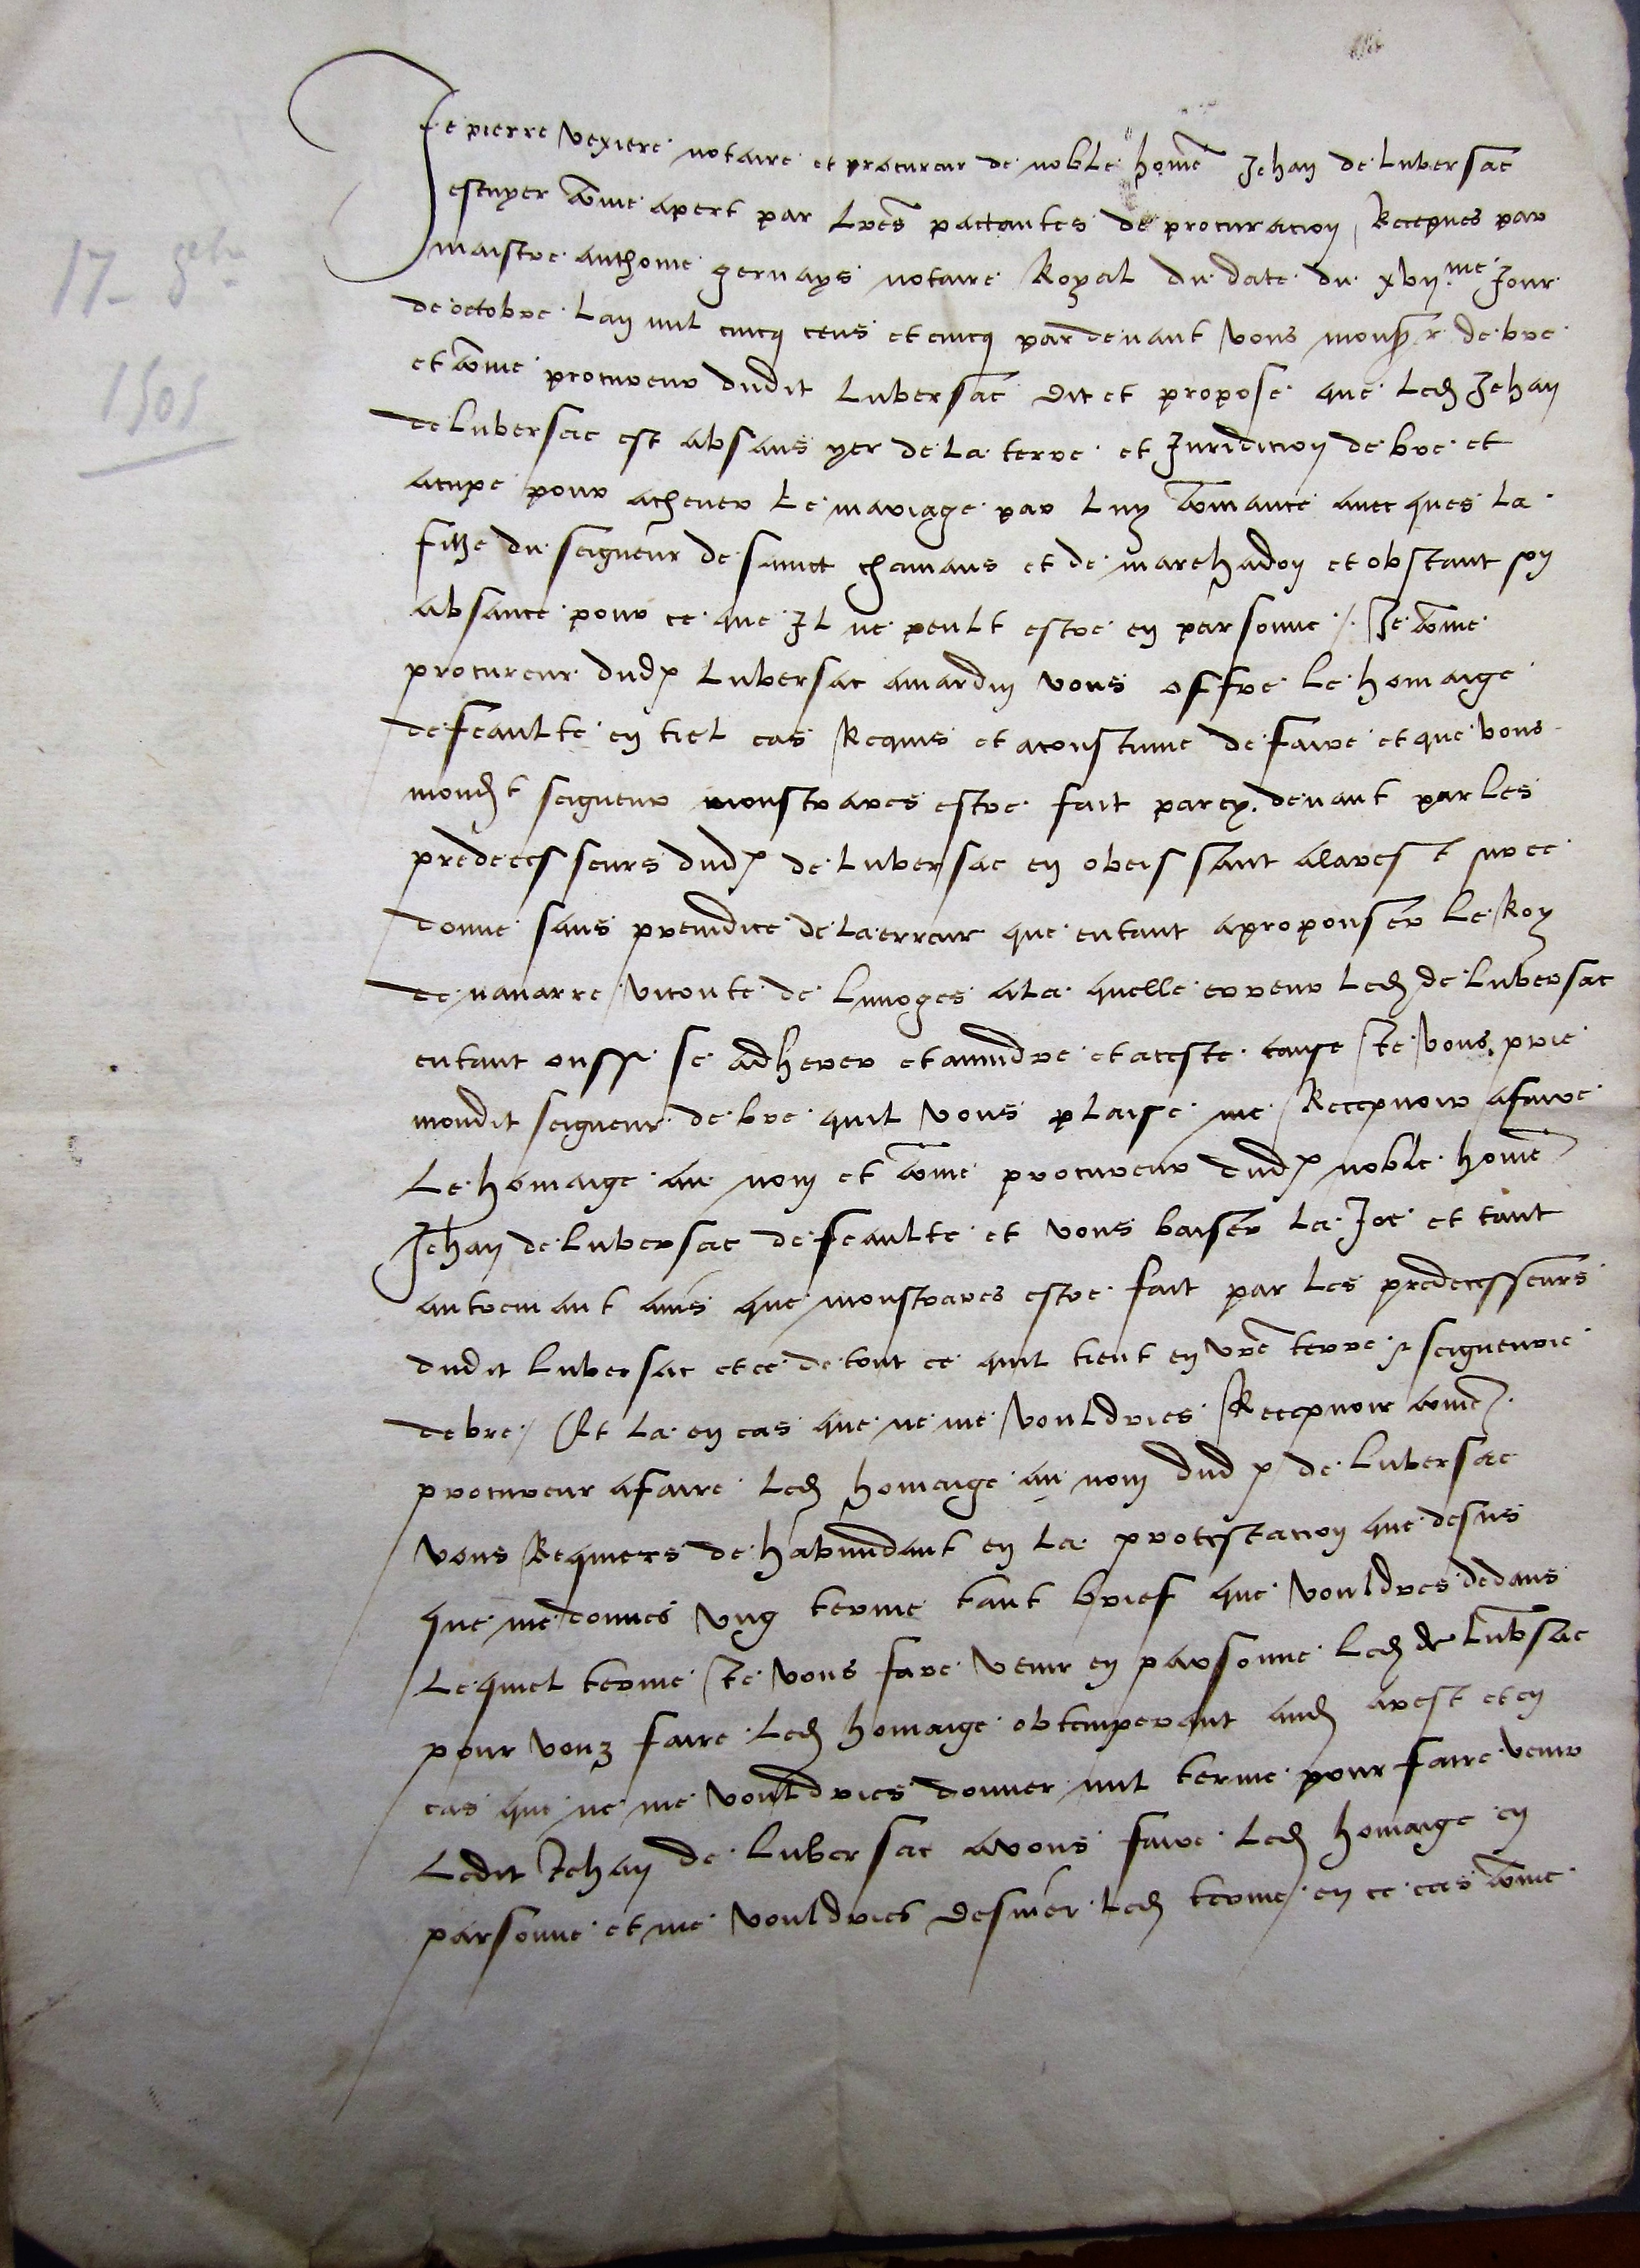 17 - 8bre
1505
Je pierre vexiere notaire et procureur de noble home Jehan de lubersac
escuyer come apert par lres pactantes de procuracion Recepues par
maistre anthoine gervays notaire Royal du date du xvii.me Jour
de octobre lan mil cincq cens et cincq par devant vous monsr de bre
et come procureur dudit lubersac dit et propose que led Jehan
de lubersac est absans yer de la terre et Juridicion de bre et
acupe pour achever le mariage par luy comance avecques la
fille du seigneur de sainct chamans et de marchadon et obstant son
absance pour ce que Il ne peult estre en parsonne / Je come
procureur dud lubersac vous offre le homaige
de feaulte en tiel cas Requis et acoustume de faire et que vous
mondt seigneur monstrares estre fait par cy devant par les
predecesseurs dud de lubersac en obeissant alarest sur ce
donne sans preiudice de la erreur que entant aproponser le Roy
de navarre viconte de limoges ala quelle erreur led de lubersac
entant oussi se adherer et aiundre et aceste cause Je vous prie
mondit seigneur de bre quil vous plaise me Recepvoir afaire
le homaige au nom et come procureur dud noble home
Jehan de lubersac de feaulte et vous baiser la Joe et tant
autremant ains que monstrares estre fait par les predecesseurs
dudit lubersac et ce de tout ce quil tient en vre terre et seigneurie
de bre / Et la en cas que ne me vouldries Recepvoir come
procureur afaire led homaige au nom dud de lubersac
vous Requiers de habundant en la protestacion que desus
que me donnes ung terme tant brief que vouldres dedans
lequel terme Je vous fare venir en parsonne led de lubsac
pour vous faire led homaige obtemperant aud arest et en
cas que ne me vouldries donner nul terme pour faire venir
ledit Jehan de lubersac avous faire led homaige en
parsonne et me vouldries desnier led terme / en ce cas come